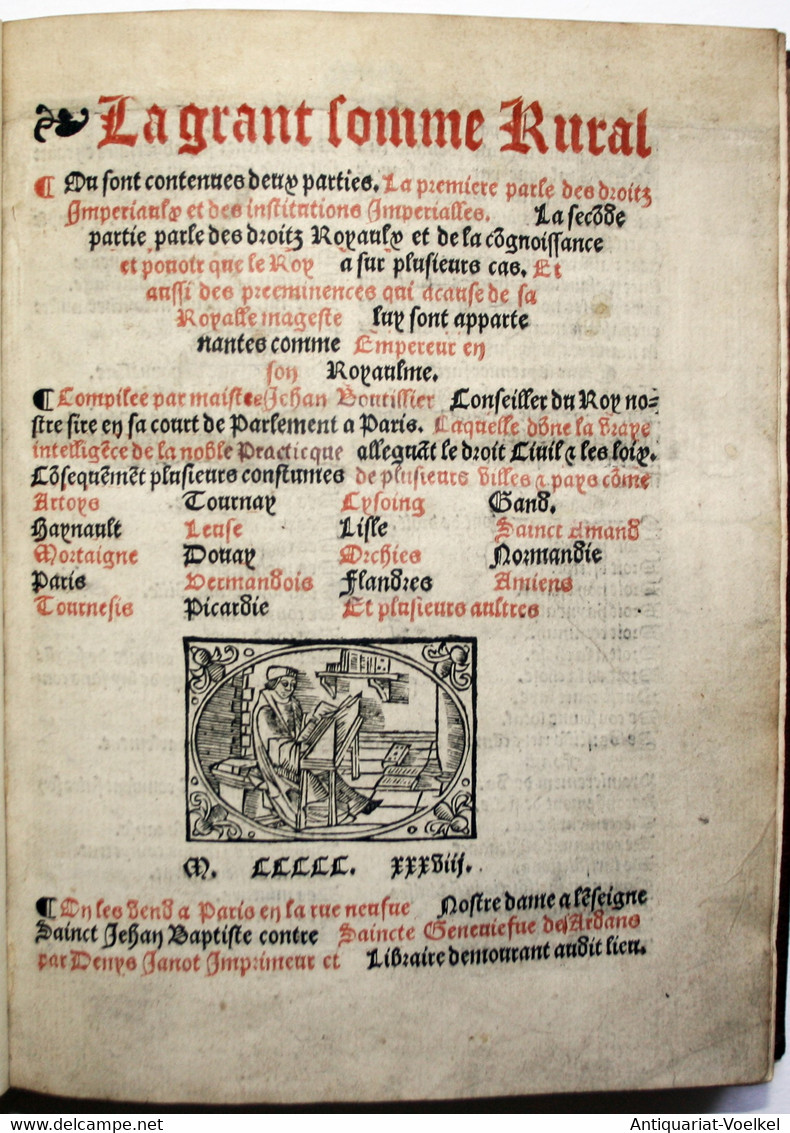 La grant somme Rural
¶ Ou sont contenues deux parties. La premiere parle des droitz
Imperiaulx et des institutions Imperialles. La secõde
partie parle des droitz Royaulx et de la cõgnoissance
et povoir que le Roy a sur plusieurs cas. Et
aussi des preeminences qui a cause de sa
Royalle mageste luy sont apparte
nantes comme Empereur en
son Royaulme.
¶ Compilee par maistre Jehan Boutillier Conseiller du Roy no=
stre sire en sa court de Parlement a Paris. Laquelle dõne la vraye
intelligẽce de la noble Practicque alleguãt le droit Civil & les loix.
Cõsequemẽt plusieurs constumes de plusieurs villes & pays cõme
Artoys Tournay Cysoing Gand.
Haynault Leuse Lisle Sainct Amand
Mortaigne Douay Orchies Normandie
Paris Vermandois Flandres Amiens
Tournesis Picardie Et plusieurs aultres
M. CCCCC. xxxviij.
¶ On les vend a Paris en la rue neufue Nostre dame a lẽseigne
Sainct Jehan Baptiste contre Saincte Geneviefue des Ardans
par Denys Janot Imprimeur et Libraire demourant audit lieu.
delcampe.net
Antiquariat-Voelkel